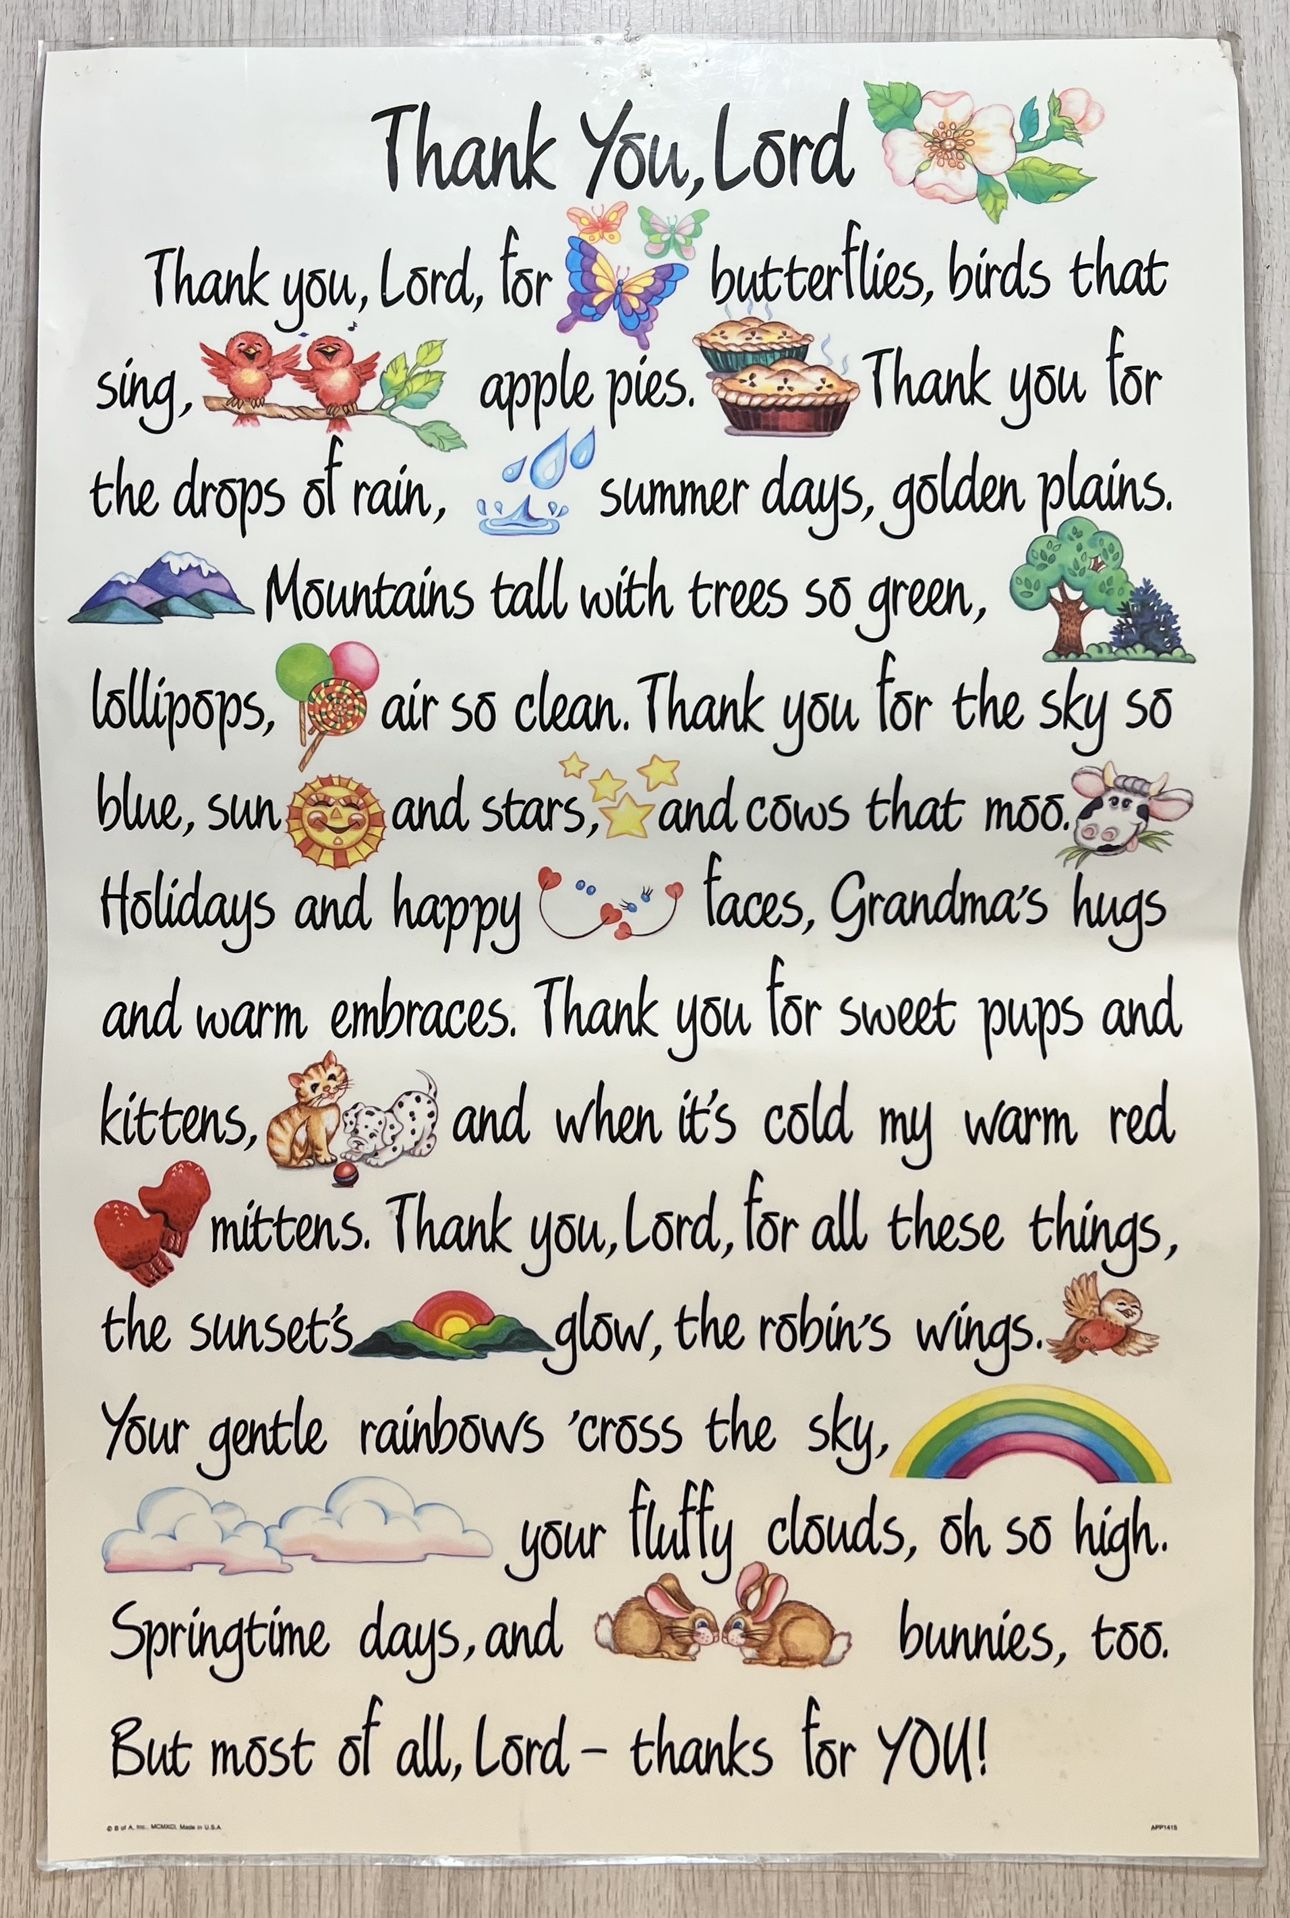 Thank You, Lord
Thank you, Lord, for butterflies, birds that
sing, apple pies. Thank you for
the drops of rain, summer days, golden plains.
Mountains tall with trees so green,
lollipops, air so clean. Thank you for the sky so
blue, sun and stars, and cows that moo.
Holidays and happy faces, Grandma's hugs
and warm embraces. Thank you for sweet pups and
kittens, and when it's cold my warm red
mittens. Thank you, Lord, for all these things,
the sunset's glow, the robin's wings.
Your gentle rainbows 'cross the sky,
your fluffy clouds, oh so high.
Springtime days, and bunnies, too.
But most of all, Lord – thanks for YOU!
© B of A, Inc., MCMXCI, Made in U.S.A. APP1415